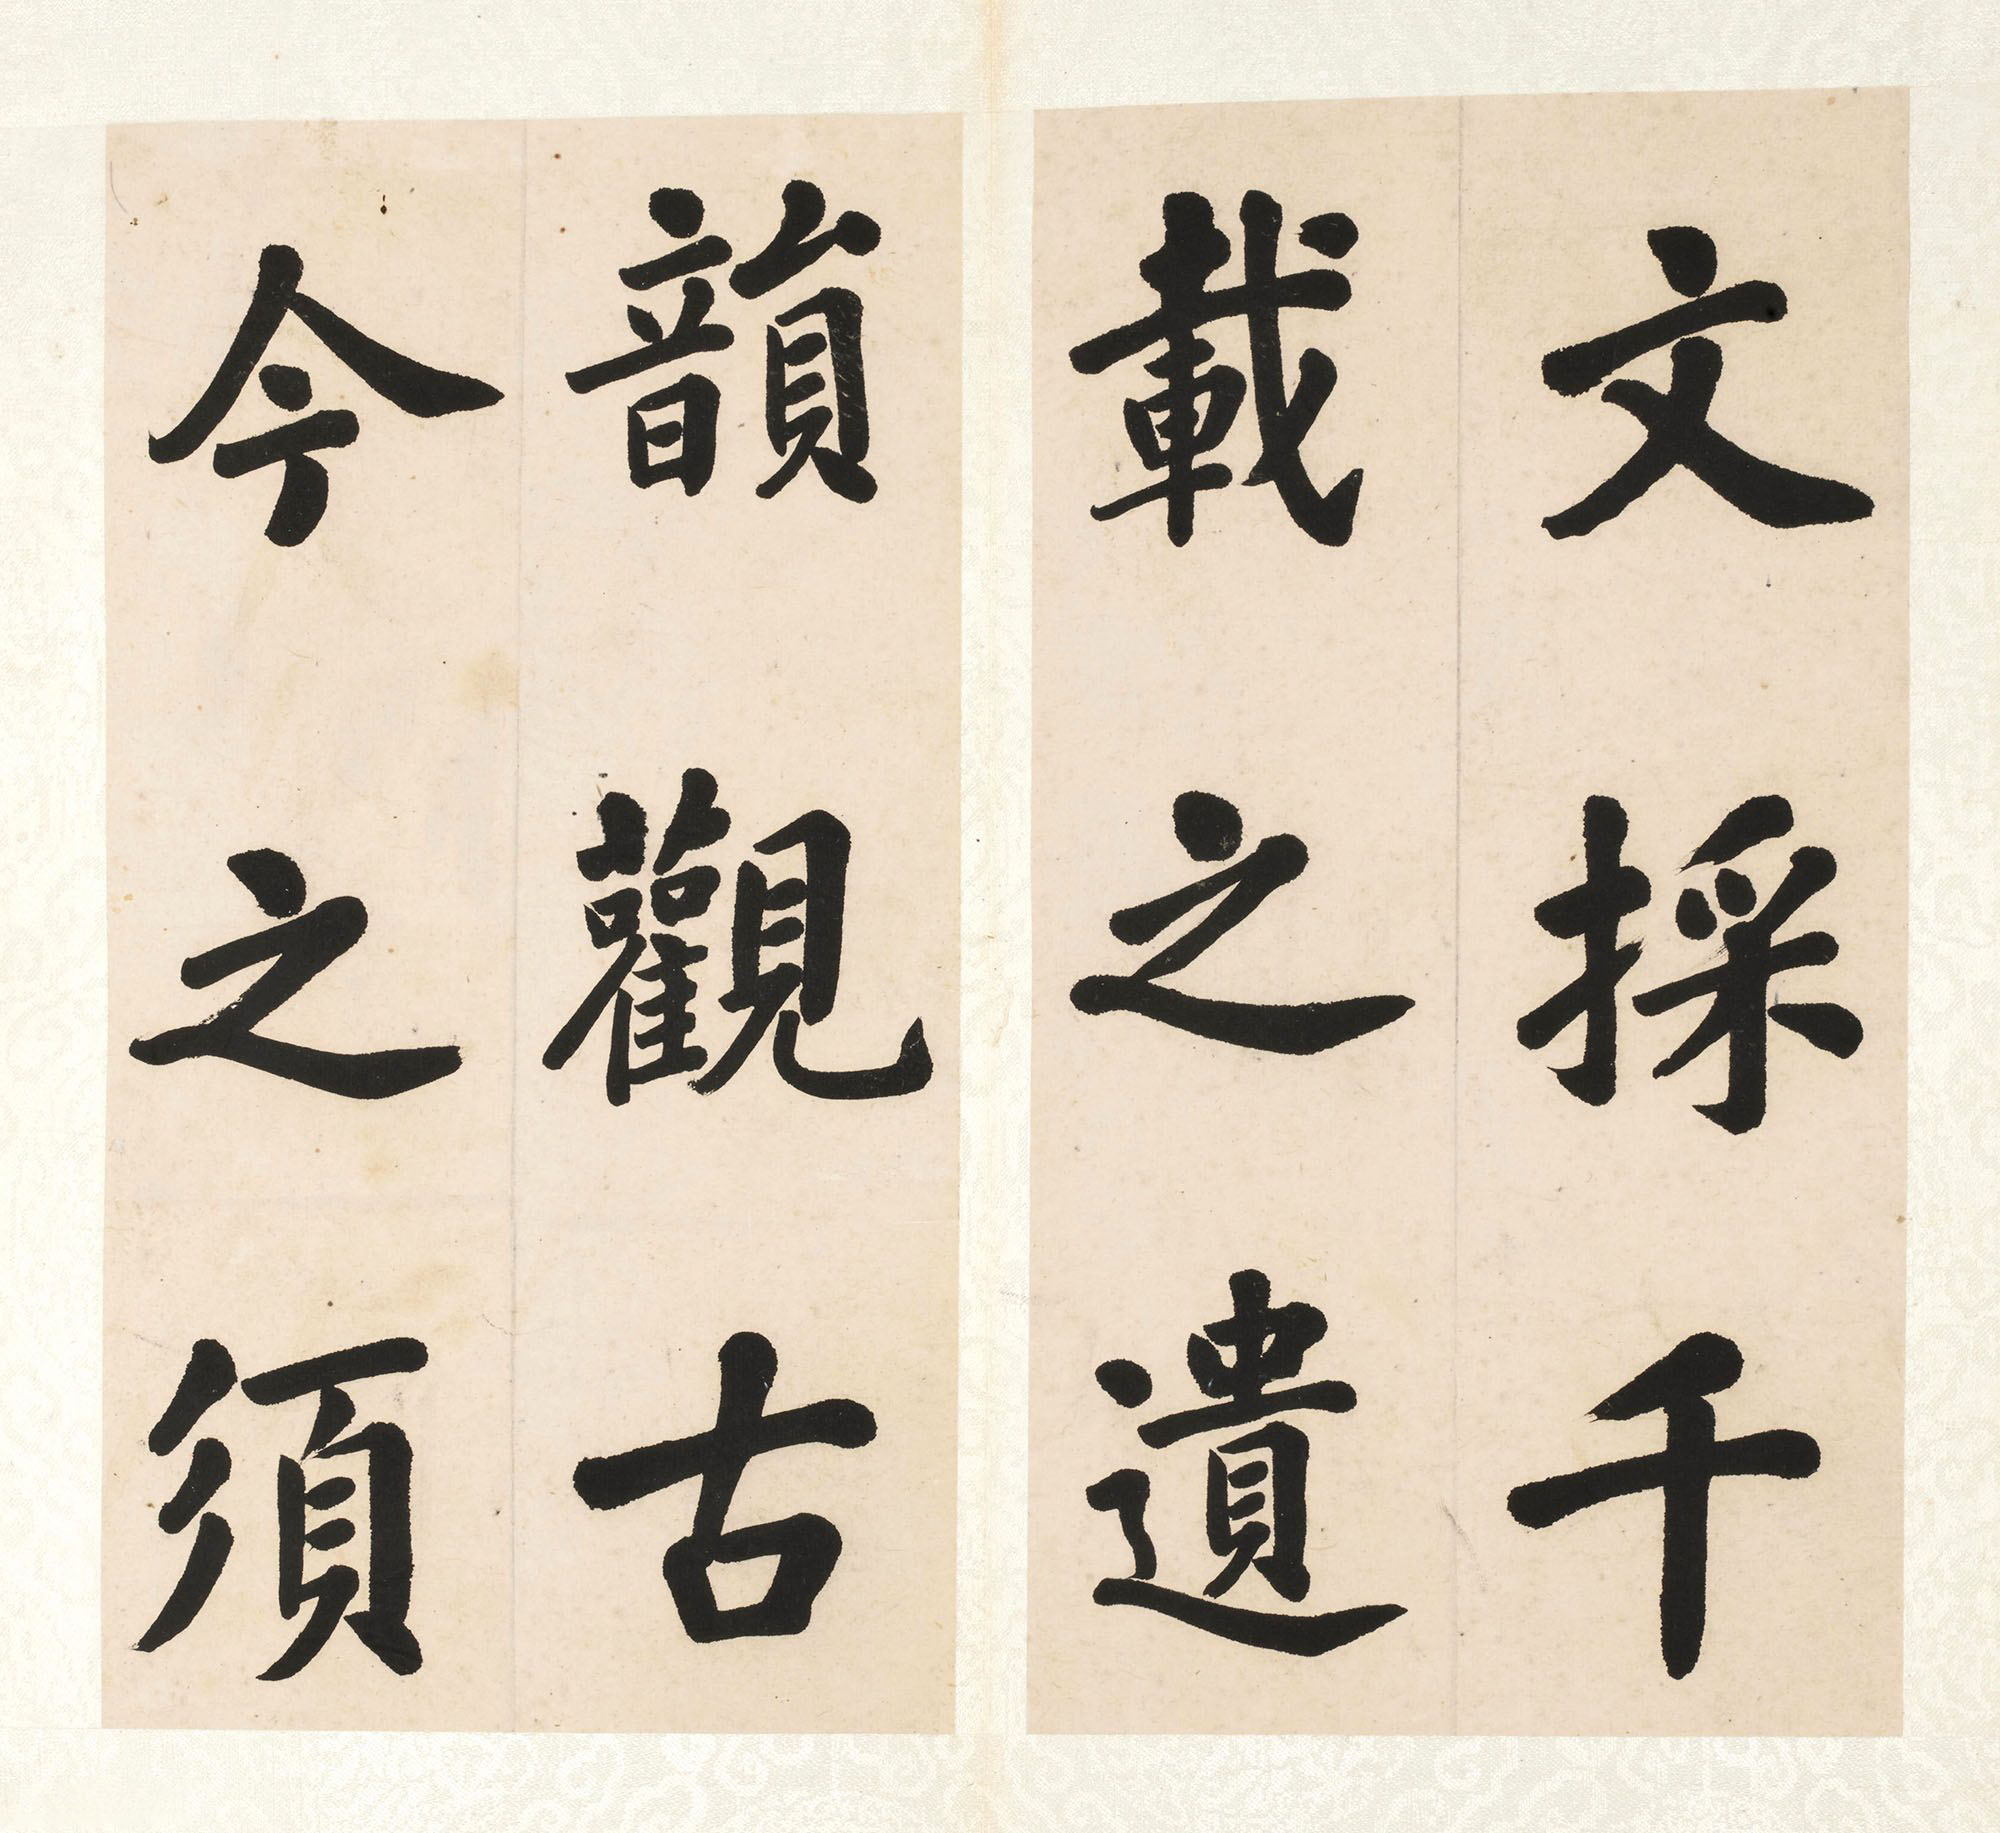 文採千
載之遺
韻觀古
今之須